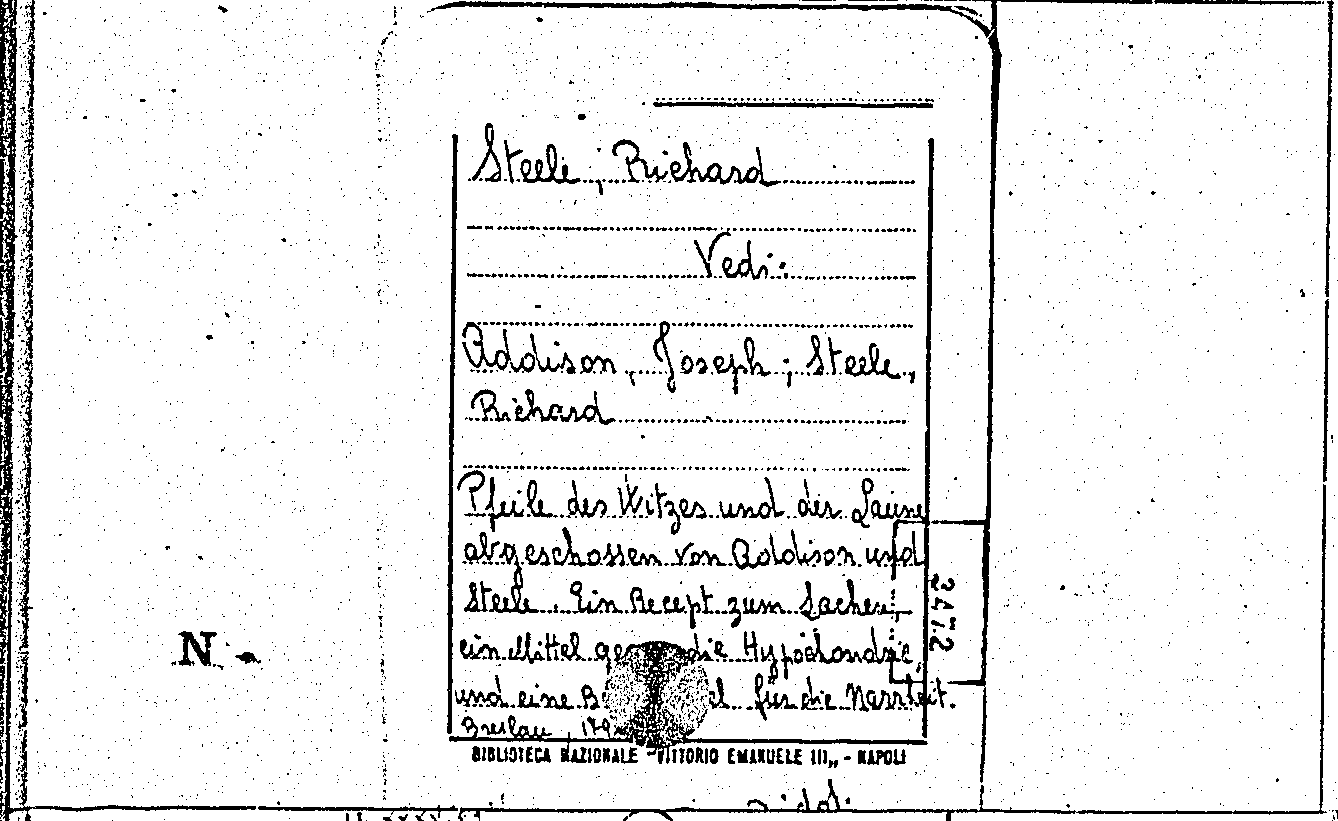 Steele, Richard
Vedi:
Addison, Joseph; Steele,
Richard
Pfeile des Witzes und der Laune
abgeschossen von Addison und
Steele. Ein Recept zum Lachen,
ein Mittel die Hypochondrie,
und eine für die Narrheit.
Breslau,
BIBLIOTECA NAZIONALE "VITTORIO EMANUELE III„ - NAPOLI
N